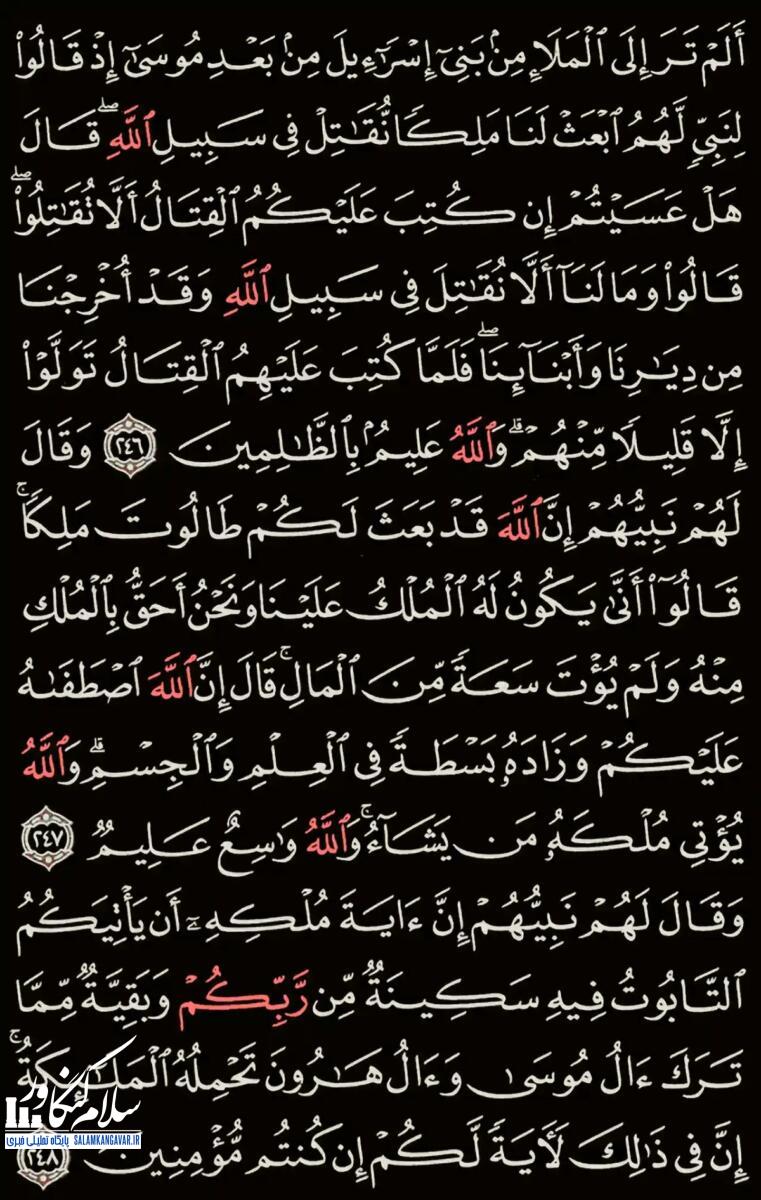 أَلَمْ تَرَ إِلَى ٱلْمَلَإِ مِنۢ بَنِىٓ إِسْرَٰٓءِيلَ مِنۢ بَعْدِ مُوسَىٰٓ إِذْ قَالُوا۟
لِنَبِىٍّ لَّهُمُ ٱبْعَثْ لَنَا مَلِكًا نُّقَٰتِلْ فِى سَبِيلِ ٱللَّهِۖ قَالَ
هَلْ عَسَيْتُمْ إِن كُتِبَ عَلَيْكُمُ ٱلْقِتَالُ أَلَّا تُقَٰتِلُوا۟ۖ
قَالُوا۟ وَمَا لَنَآ أَلَّا نُقَٰتِلَ فِى سَبِيلِ ٱللَّهِ وَقَدْ أُخْرِجْنَا
مِن دِيَٰرِنَا وَأَبْنَآئِنَاۖ فَلَمَّا كُتِبَ عَلَيْهِمُ ٱلْقِتَالُ تَوَلَّوْا۟
إِلَّا قَلِيلًا مِّنْهُمْۗ وَٱللَّهُ عَلِيمٌۢ بِٱلظَّٰلِمِينَ ٢٤٦ وَقَالَ
لَهُمْ نَبِيُّهُمْ إِنَّ ٱللَّهَ قَدْ بَعَثَ لَكُمْ طَالُوتَ مَلِكًاۚ
قَالُوٓا۟ أَنَّىٰ يَكُونُ لَهُ ٱلْمُلْكُ عَلَيْنَا وَنَحْنُ أَحَقُّ بِٱلْمُلْكِ
مِنْهُ وَلَمْ يُؤْتَ سَعَةً مِّنَ ٱلْمَالِۚ قَالَ إِنَّ ٱللَّهَ ٱصْطَفَىٰهُ
عَلَيْكُمْ وَزَادَهُۥ بَسْطَةً فِى ٱلْعِلْمِ وَٱلْجِسْمِۗ وَٱللَّهُ
يُؤْتِى مُلْكَهُۥ مَن يَشَآءُۚ وَٱللَّهُ وَٰسِعٌ عَلِيمٌ ٢٤٧
وَقَالَ لَهُمْ نَبِيُّهُمْ إِنَّ ءَايَةَ مُلْكِهِۦٓ أَن يَأْتِيَكُمُ
ٱلتَّابُوتُ فِيهِ سَكِينَةٌ مِّن رَّبِّكُمْ وَبَقِيَّةٌ مِّمَّا
تَرَكَ ءَالُ مُوسَىٰ وَءَالُ هَٰرُونَ تَحْمِلُهُ ٱلْمَلَٰٓئِكَةُۚ
إِنَّ فِى ذَٰلِكَ لَءَايَةً لَّكُمْ إِن كُنتُم مُّؤْمِنِينَ ٢٤٨
سلام کنگاور
پایگاه تحلیلی خبری SALAMKANGAVAR.IR